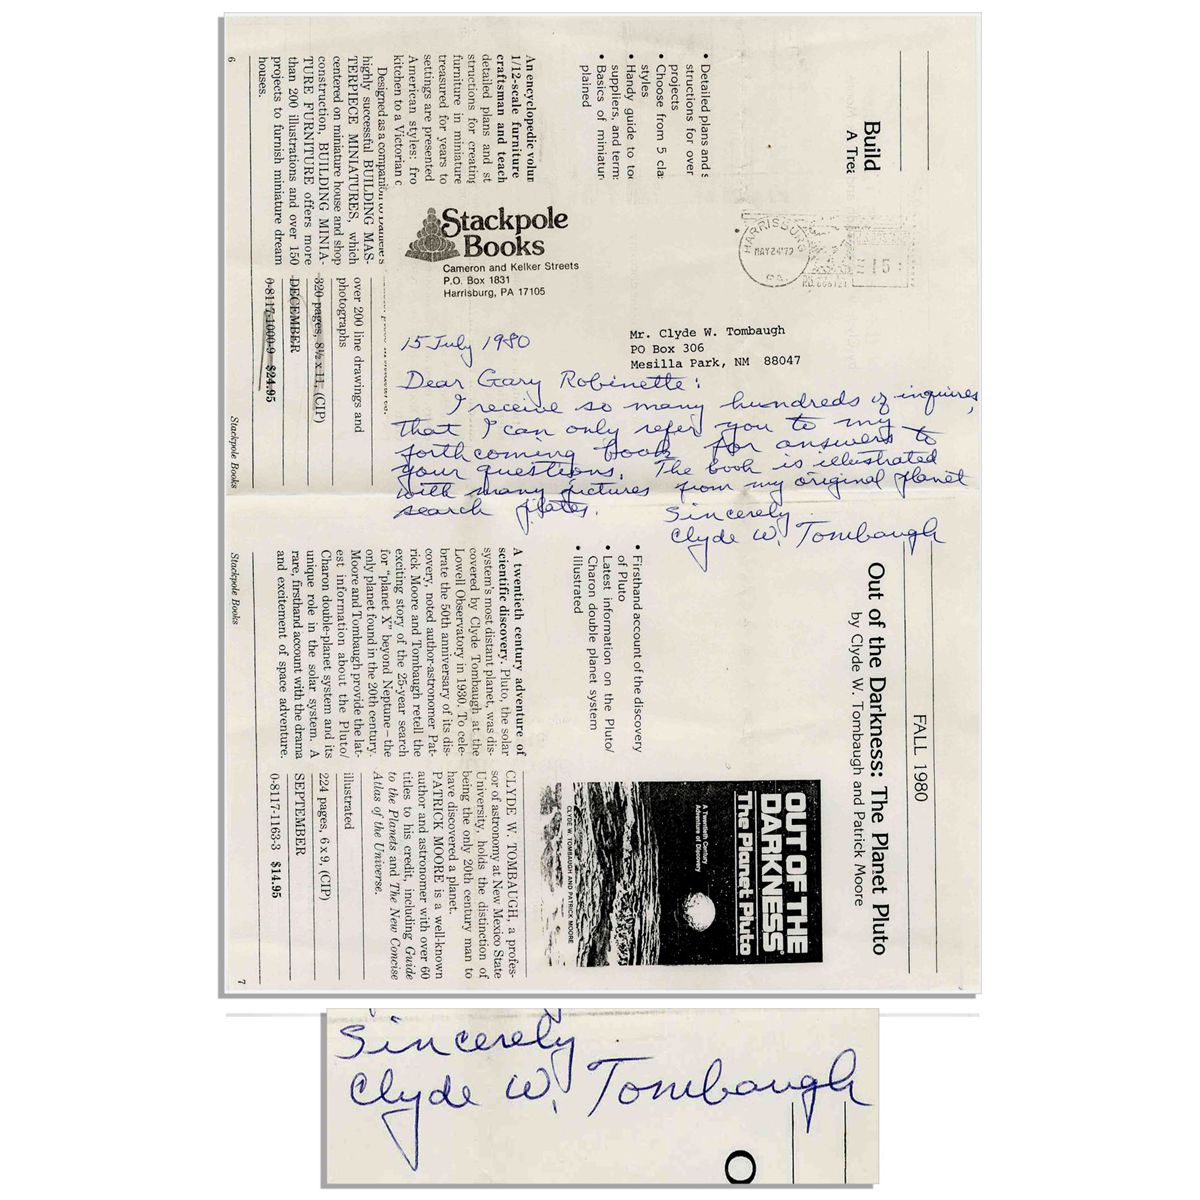 Build
A Trea
• Detailed plans and s
structions for over
projects
• Choose from 5 cla
styles
• Handy guide to to
suppliers, and term
• Basics of miniatur
plained
An encyclopedic volum
1/12-scale furniture
craftsman and teach
detailed plans and st
structions for creating
furniture in miniature
treasured for years to
settings are presented
American styles: fro
kitchen to a Victorian c
Designed as a companion to Daniele's
highly successful BUILDING MAS-
TERPIECE MINIATURES, which
centered on miniature house and shop
construction, BUILDING MINIA-
TURE FURNITURE offers more
than 200 illustrations and over 150
projects to furnish miniature dream
houses.
6
over 200 line drawings and
photographs
320 pages, 8½ x 11, (CIP)
DECEMBER
0-8117-1000-9 $24.95
Stackpole Books
Stackpole
Books
Cameron and Kelker Streets
P.O. Box 1831
Harrisburg, PA 17105
HARRISBURG
MAY 24 '79
PA.
15
Mr. Clyde W. Tombaugh
PO Box 306
Mesilla Park, NM 88047
15 July 1980
Dear Gary Robinette:
I receive so many hundreds of inquires,
that I can only refer you to my
forthcoming book for answers to
your questions. The book is illustrated
with many pictures from my original planet
search plates.
Sincerely
Clyde W. Tombaugh
FALL 1980
Out of the Darkness: The Planet Pluto
by Clyde W. Tombaugh and Patrick Moore
• Firsthand account of the discovery
of Pluto
• Latest information on the Pluto/
Charon double planet system
• Illustrated
A twentieth century adventure of
scientific discovery. Pluto, the solar
system's most distant planet, was dis-
covered by Clyde Tombaugh at the
Lowell Observatory in 1930. To cele-
brate the 50th anniversary of its dis-
covery, noted author-astronomer Pat-
rick Moore and Tombaugh retell the
exciting story of the 25-year search
for "planet X" beyond Neptune—the
only planet found in the 20th century.
Moore and Tombaugh provide the lat-
est information about the Pluto/
Charon double-planet system and its
unique role in the solar system. A
rare, firsthand account with the drama
and excitement of space adventure.
Stackpole Books
OUT OF THE
DARKNESS
The Planet Pluto
A Twentieth Century
Adventure of Discovery
CLYDE W. TOMBAUGH AND PATRICK MOORE
CLYDE W. TOMBAUGH, a profes-
sor of astronomy at New Mexico State
University, holds the distinction of
being the only 20th century man to
have discovered a planet.
PATRICK MOORE is a well-known
author and astronomer with over 60
titles to his credit, including Guide
to the Planets and The New Concise
Atlas of the Universe.
illustrated
224 pages, 6 x 9, (CIP)
SEPTEMBER
0-8117-1163-3 $14.95
7
Sincerely
Clyde W. Tombaugh
O